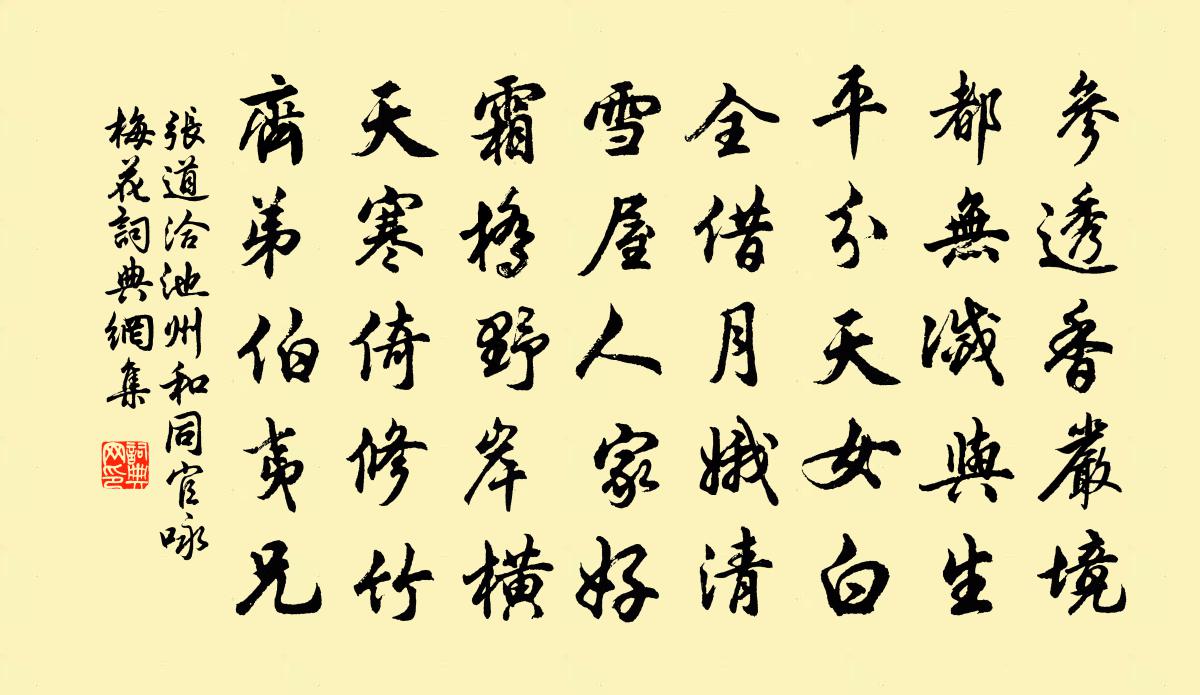 參透香嚴境
都無滅與生
平分天女白
全借月娥清
雪屋人家好
霜橋野岸橫
天寒倚修竹
齊弟伯夷兄
張道洽池州和同官咏
梅花詞典網集
詞典
网印